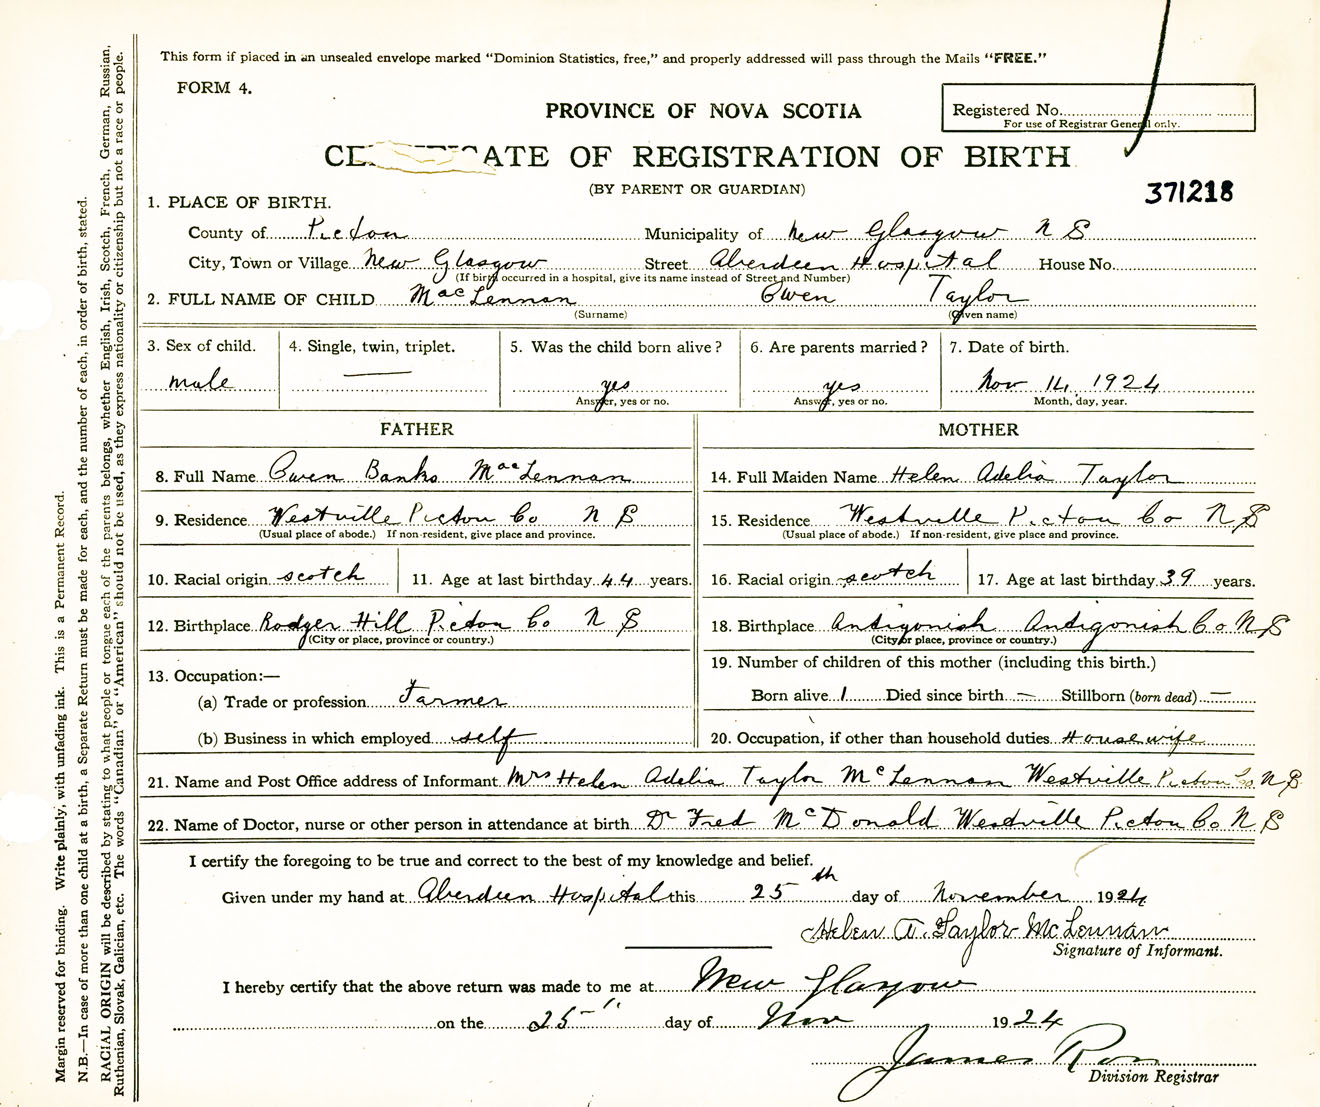 This form if placed in an unsealed envelope marked "Dominion Statistics, free," and properly addressed will pass through the Mails "FREE."
FORM 4.
PROVINCE OF NOVA SCOTIA
Registered No.
For use of Registrar General only.
CERTIFICATE OF REGISTRATION OF BIRTH
(BY PARENT OR GUARDIAN)
371218
1. PLACE OF BIRTH.
County of Pictou Municipality of New Glasgow N S
City, Town or Village New Glasgow Street Aberdeen Hospital House No.
(If birth occurred in a hospital, give its name instead of Street and Number)
2. FULL NAME OF CHILD MacLennan Owen Taylor
(Surname) (Given name)
3. Sex of child. 4. Single, twin, triplet. 5. Was the child born alive? 6. Are parents married? 7. Date of birth.
male — yes yes Nov 14, 1924
Answer, yes or no. Answer, yes or no. Month, day, year.
FATHER MOTHER
8. Full Name Owen Banks MacLennan 14. Full Maiden Name Helen Adelia Taylor
9. Residence Westville Pictou Co N S 15. Residence Westville Pictou Co N S
(Usual place of abode.) If non-resident, give place and province. (Usual place of abode.) If non-resident, give place and province.
10. Racial origin scotch 11. Age at last birthday 44 years. 16. Racial origin scotch 17. Age at last birthday 39 years.
12. Birthplace Rodger Hill Pictou Co N S 18. Birthplace Antigonish Antigonish Co N S
(City or place, province or country.) (City or place, province or country.)
13. Occupation:— 19. Number of children of this mother (including this birth.)
(a) Trade or profession Farmer Born alive 1 Died since birth — Stillborn (born dead) —
(b) Business in which employed self 20. Occupation, if other than household duties Housewife
21. Name and Post Office address of Informant Mrs Helen Adelia Taylor McLennan Westville Pictou Co N S
22. Name of Doctor, nurse or other person in attendance at birth Dr Fred McDonald Westville Pictou Co N S
I certify the foregoing to be true and correct to the best of my knowledge and belief.
Given under my hand at Aberdeen Hospital this 25th day of November 1924
Helen A. Taylor McLennan
Signature of Informant.
I hereby certify that the above return was made to me at New Glasgow
on the 25" day of Nov 1924
James Ross
Division Registrar
Margin reserved for binding. Write plainly, with unfading ink. This is a Permanent Record.
N.B.—In case of more than one child at a birth, a Separate Return must be made for each, and the number of each, in order of birth, stated.
RACIAL ORIGIN will be described by stating to what people or tongue each of the parents belongs, whether English, Irish, Scotch, French, German, Russian,
Ruthenian, Slovak, Galician, etc. The words "Canadian" or "American" should not be used, as they express nationality or citizenship but not a race or people.